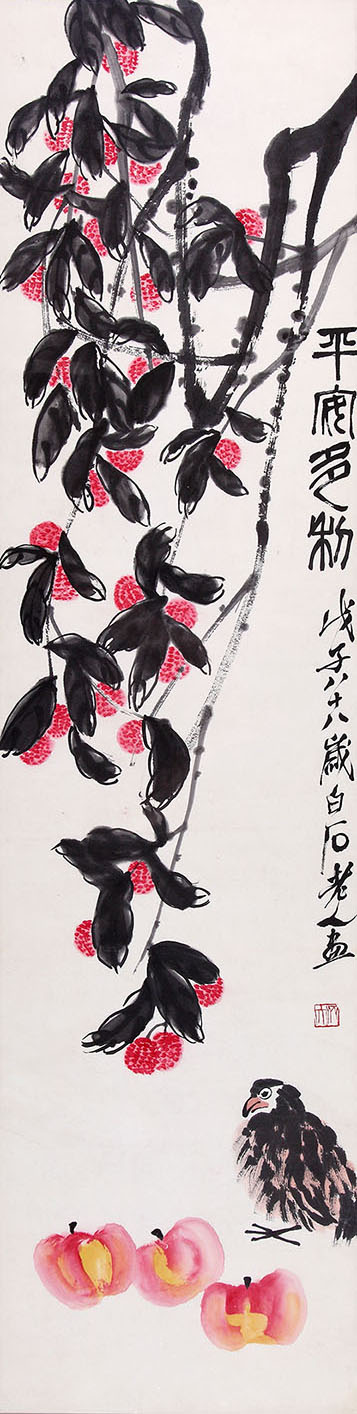 平安多利
戊子八十八歲白石老人畫